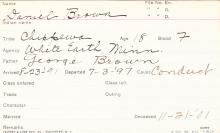 English Name
Daniel Brown
File No.
Indian name
Tribe Chippewa Age 18 Blood 7
Agency White Earth Minn.
Father George Brown
Arrived 8-23-01 Departed 7-3-97 Cause Conduct
Class entered Class left
Trade Outing
Character
Married Deceased 11-21-01
Remarks